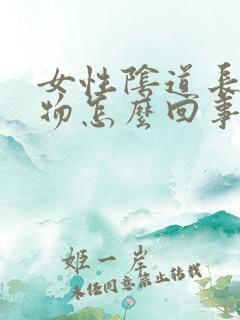 女性陰道長
物怎麼回事
姬一岸
未经同意禁止转载